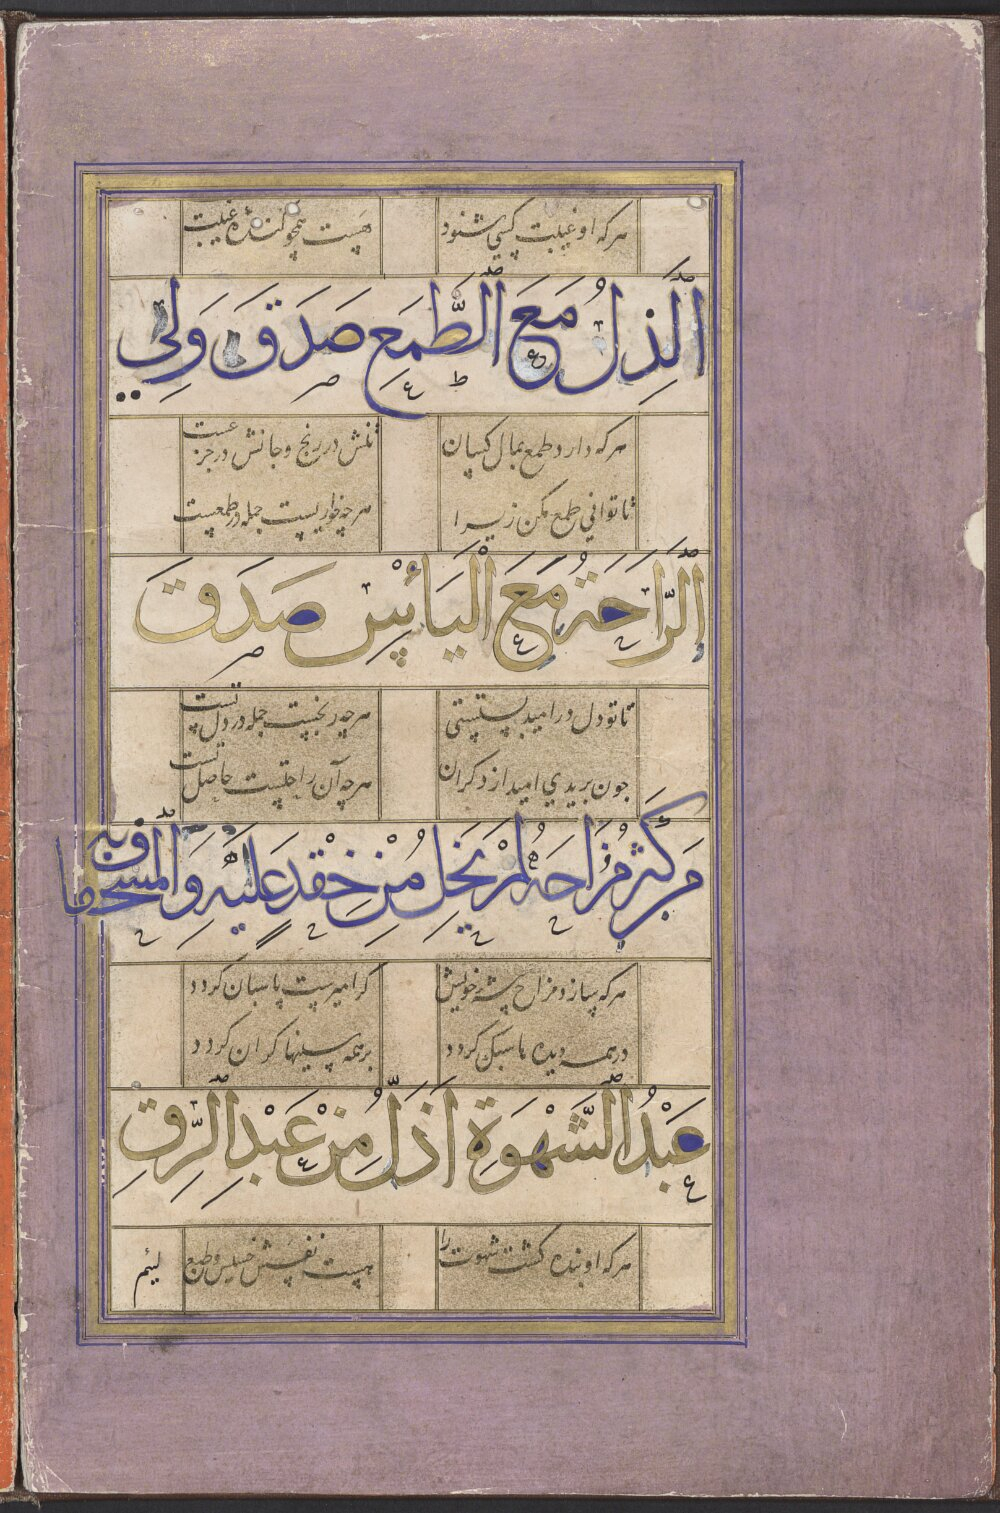 هرکه او غیبت کسی شنود هست همچو کننده غیبت
اَلذُلُ مَعَ الطَّمَعِ صَدَقَ وَلِي
هرکه دارد طمع بمال کسان تنش در رنج و جانش در جزعست
تا توانی طمع مکن زیرا هرچه خواریست جمله در طمعست
اَلرَّاحَةُ مَعَ الْيَأْسِ صَدَقَ
تا تو دل در امید بستستی هرچه رنجست جمله در دل تست
چون بریدی امید از دکران هرچه آن راحتست حاصل تست
مَن كَثُرَ مُزَاحُهُ لَمْ يَخَلُ مِنْ حِقْدٍ عَلَيْهِ وَالمستخفاف به
هرکه سازد مزاح پیشه خویش کر امیرست پاسبان کردد
در همه دیده ها سبک کردد بر همه سینها کران کردد
عَبْدُ الشَّهْوَةِ اَذَلُّ مِنْ عَبْدِ الرِّقِ
هرکه او بنده کشت شهوت را هست نفسش خسیس و طبع لئیم